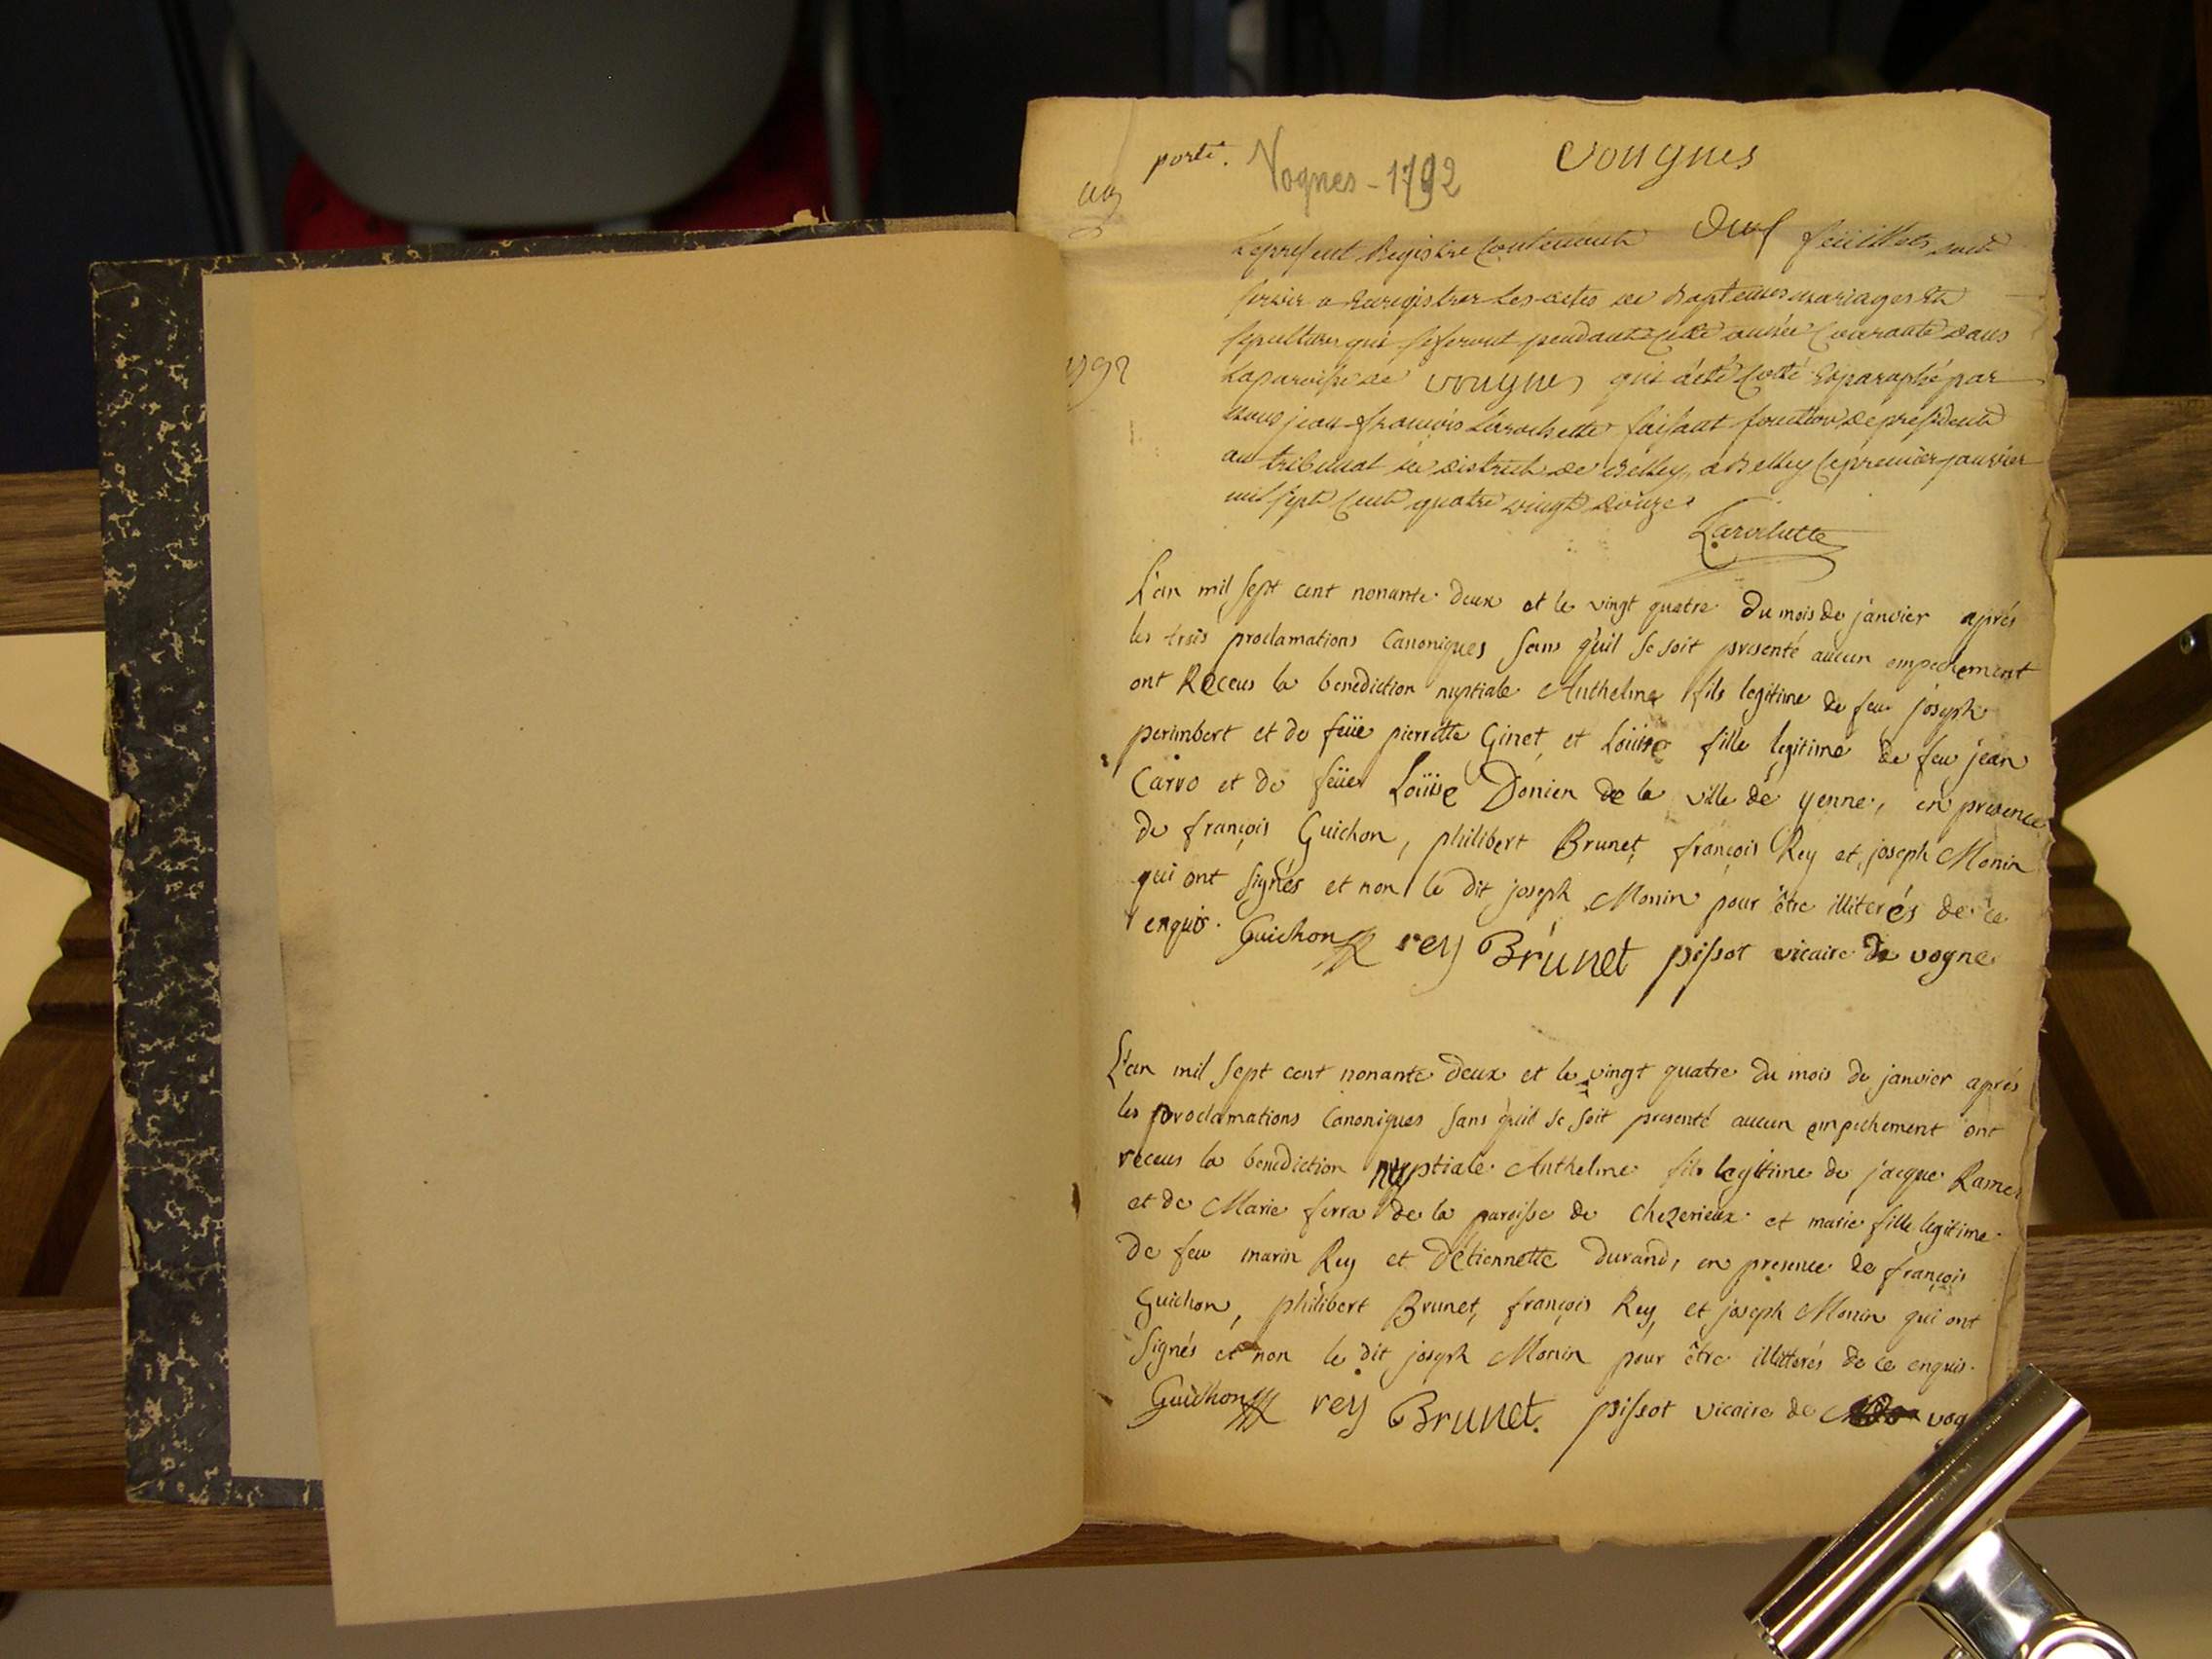 porté. Vognes - 1792 Vougnes
1792
Le present Registre Contenant deux feüillets doit
servir a Enregistrer Les actes de Baptemes mariages Et
sepultures qui se feront pendant cette année Courante dans
La paroisse de vougnes qui a été Cotté Et paraphé par
nous jean françois Larochette faisant fonction de président
au tribunal du district de Belley, a Belley Le premier janvier
mil sept Cent quatre vingt douze
Larochette
L'an mil sept cent nonante deux et le vingt quatre du mois de janvier aprés
les trois proclamations Canoniques sans qu'il se soit presenté aucun empechement
ont Receus la benediction nuptiale Anthelme fils legitime de feu joseph
perimbert et de feüe pierrette Ginet et Loüise fille legitime de feu jean
Carro et de feüe Loüise Donien de la ville de yenne, en presence
de françois Guichon, philibert Brunet, françois Rey et joseph Monin
qui ont signés et non le dit joseph Monin pour être illiterés de ce
enquis. Guichon rey Brunet pissot vicaire de vogne
L'an mil sept cent nonante deux et le vingt quatre du mois de janvier aprés
les proclamations Canoniques sans qu'il se soit presenté aucun empechement ont
receus la benediction nuptiale Anthelme fils legitime de jacque Ramel
et de Marie ferra de la paroisse de chezerieux et marie fille legitime
de feu marin Rey et d'etiennette durand, en presence de françois
Guichon, philibert Brunet, françois Rey, et joseph Monin qui ont
signés et non le dit joseph Monin pour être illitterés de ce enquis.
Guichon rey Brunet. pissot vicaire de vog